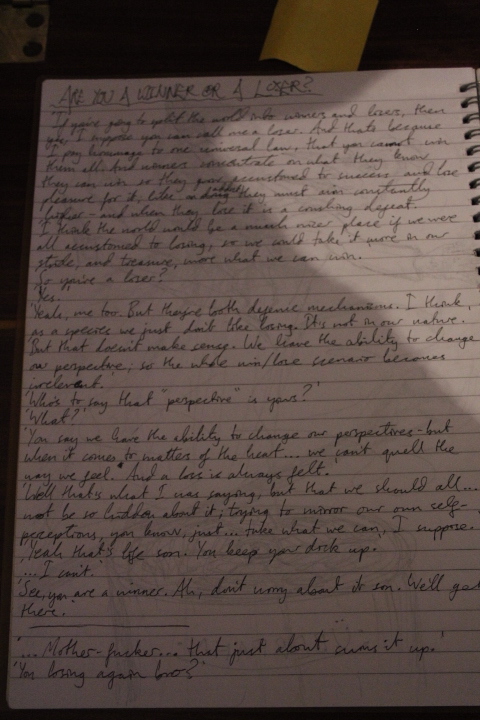 ARE YOU A WINNER OR A LOSER?
'If you're going to split the world into winners and losers, then
yes, I suppose you can call me a loser. And thats because
I pay homage to one universal law, that you cannot win
them all. And winners concentrate on what they know
they can win so they grow accustomed to success, and lose
pleasure for it, like an addict they must aim constantly
higher - and when they lose it is a crushing defeat.
I think the world would be a much nicer place if we were
all accustomed to losing, so we could take it more in our
stride, and treasure more what we can win.
'So you're a loser?'
'Yes.'
'Yeah, me too. But they're both defence mechanisms. I think,
as a species we just don't like losing. It's not in our nature.
But that doesn't make sense. We have the ability to change
our perspective; so the whole win/lose scenario becomes
irrelevant.'
'Who's to say that "perspective" is yours?'
'What?'
'You say we have the ability to change our perspectives - but
when it comes to matters of the heart... we can't quell the
way we feel. And a loss is always felt.
'Well that's what I was saying, but that we should all...
not be so about it; trying to mirror our own self-
perceptions, you know, just... take what we can, I suppose.
'Yeah that's life son. You keep your dick up.
'... I can't.'
'See, you are a winner. Ah, don't worry about it son. We'll get
there.'
'... Mother-fucker... that just about sums it up.'
'You losing again bro?'